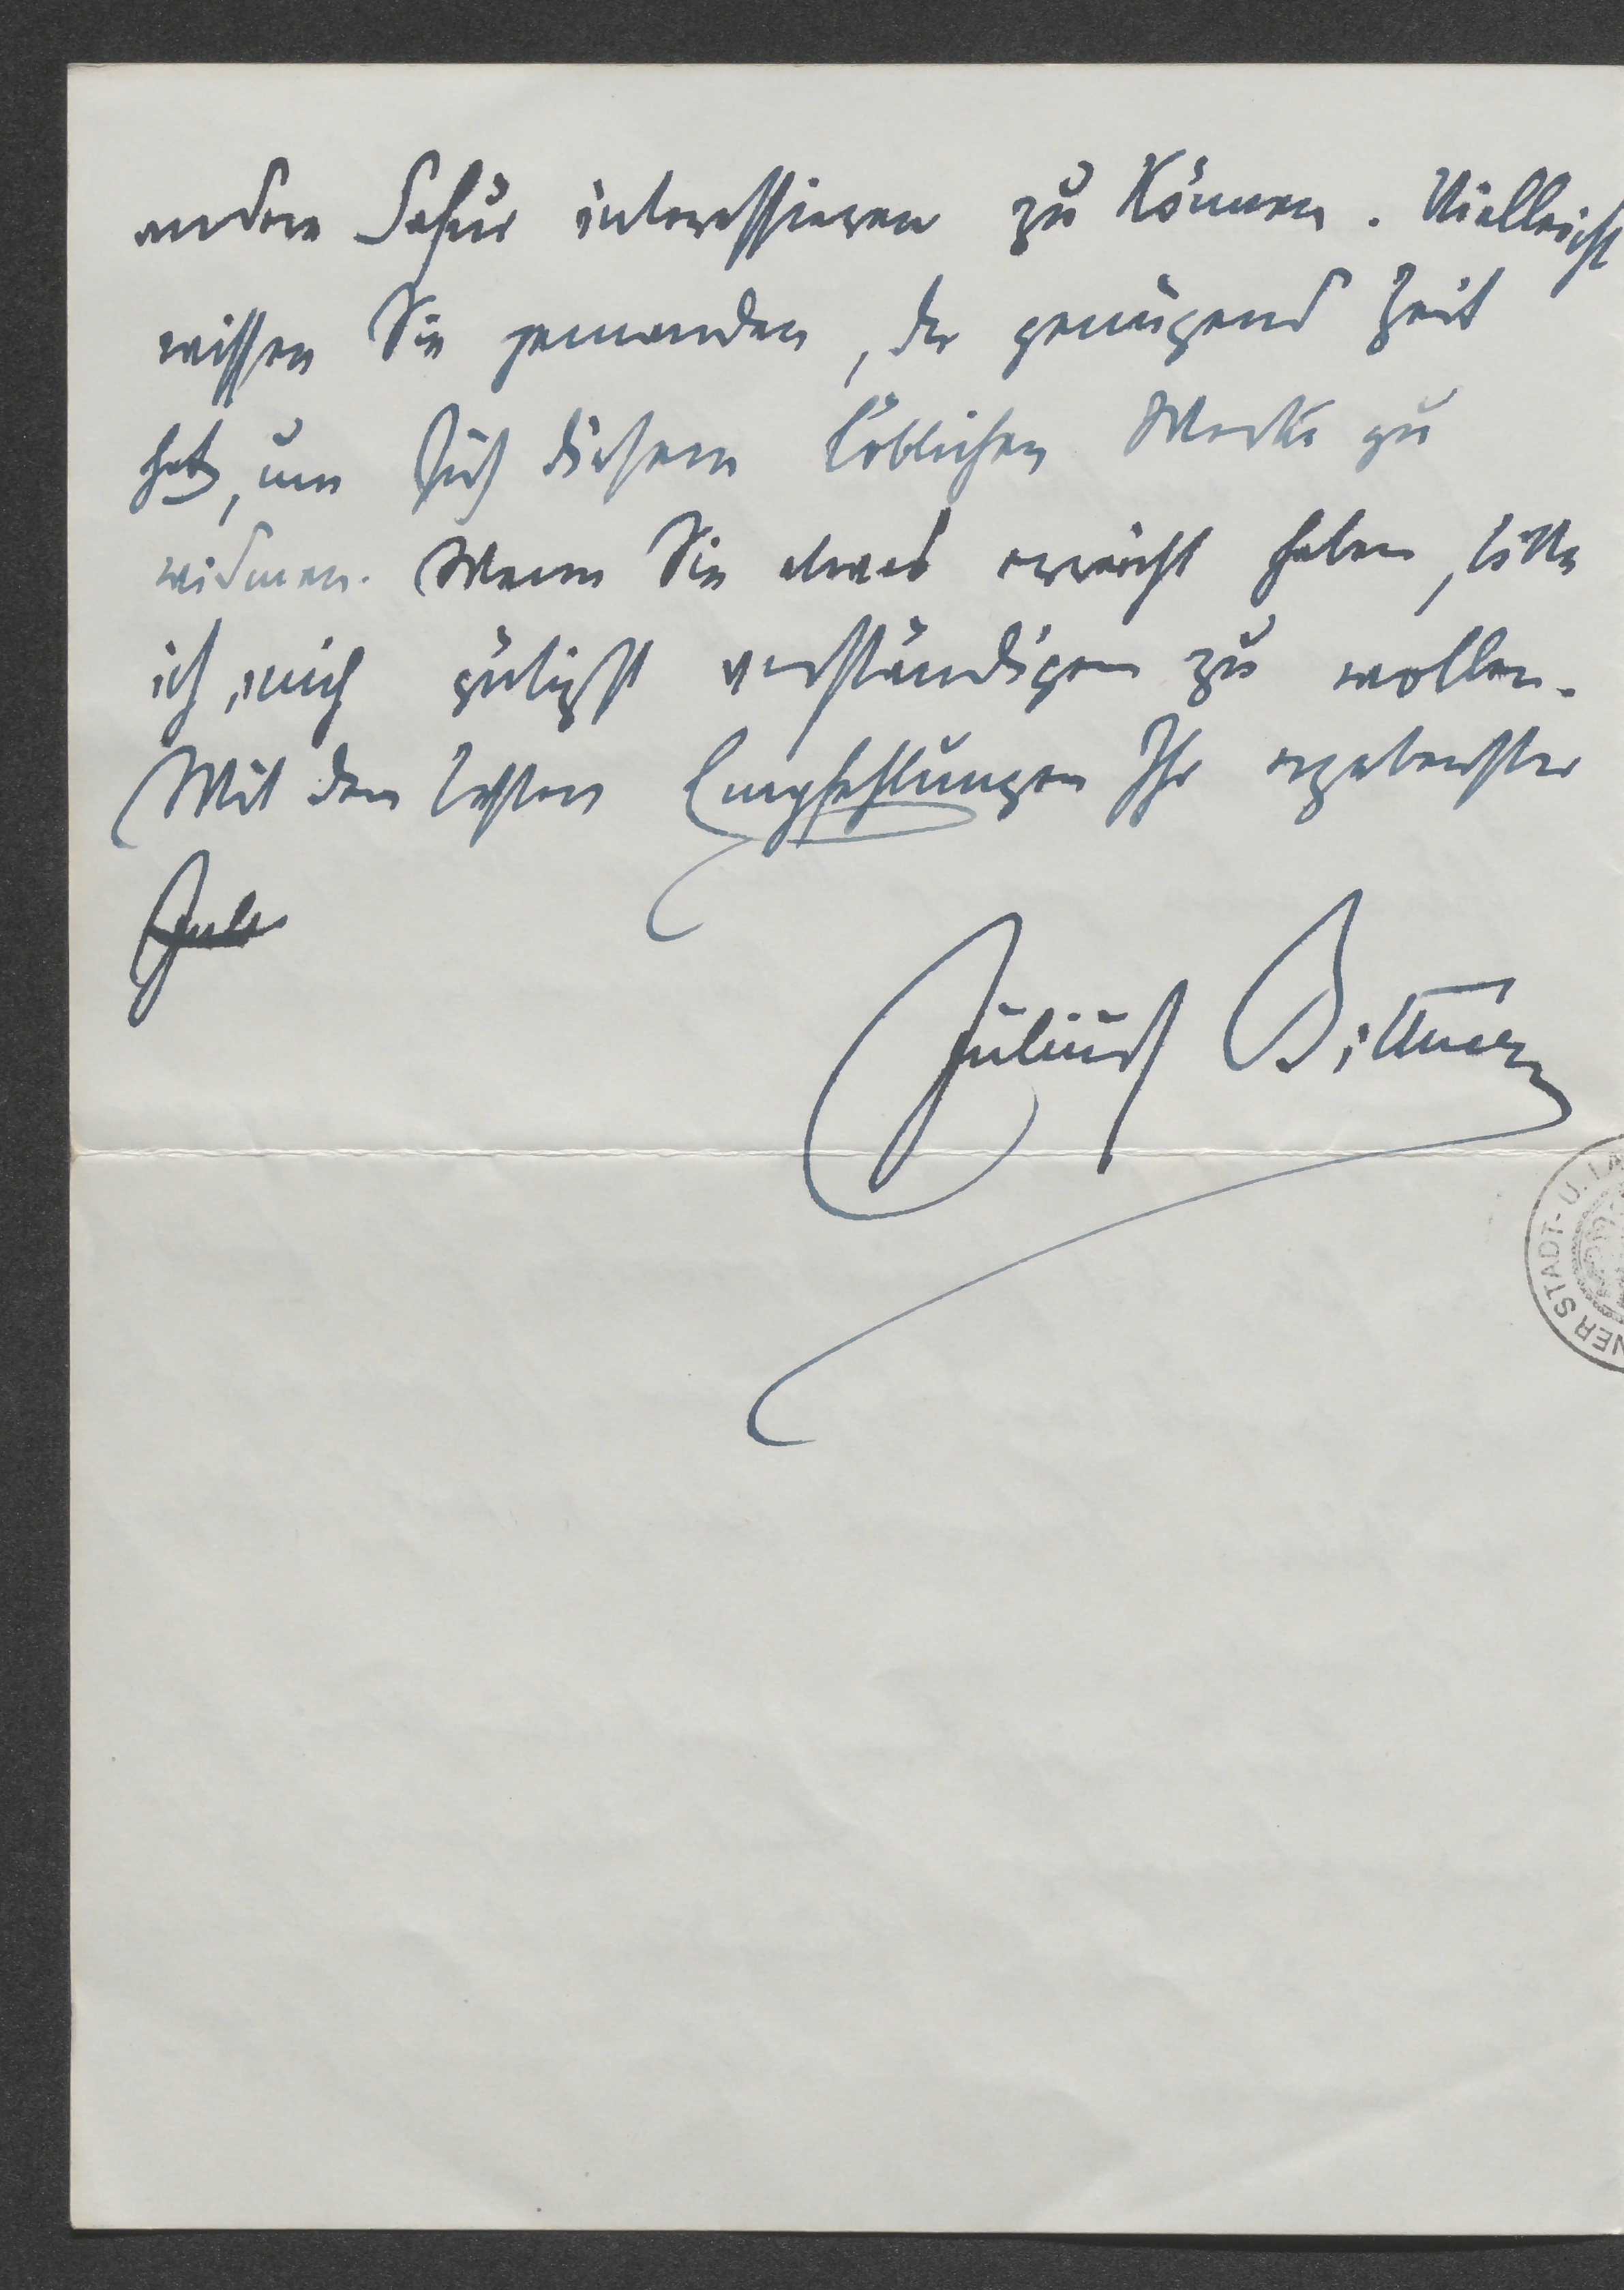 andere dafür interessieren zu können. Vielleicht
wissen Sie jemanden, der genügend Zeit
hat, um sich diesem löblichen Werke zu
widmen. Wenn Sie etwas erreicht haben, bitte
ich, mich gütigst verständigen zu wollen.
Mit den besten Empfehlungen Ihr ergebenster
Julius Bittner
NER STADT- U. LA